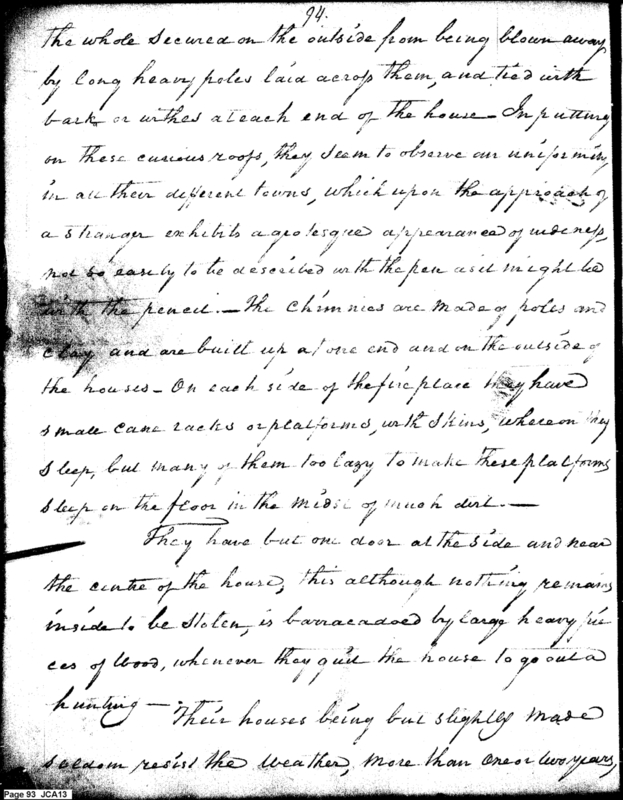 94.
the whole secured on the outside from being blown away
by long heavy poles laid across them, and tied with
bark or withes at each end of the house – In putting
on these curious roofs, they seem to observe an uniformity
in all their different towns, which upon the approach of
a stranger exhibits a grotesque appearance of rudeness,
not so easily to be described with the pen as it might be
with the pencil. – The chimnies are made of poles and
clay and are built up at one end and on the outside of
the houses – On each side of the fire place they have
small cane racks or platforms, with skins, whereon they
sleep, but many of them too lazy to make these platforms
sleep on the floor in the midst of much dirt. –
They have but one door at the side and near
the centre of the house, this although nothing remains
inside to be stolen, is barracadoed by large heavy pie
ces of wood, whenever they quit the house to go out a
hunting –
Their houses being but slightly made
seldom resist the weather, more than one or two years,
Page 93 JCA13